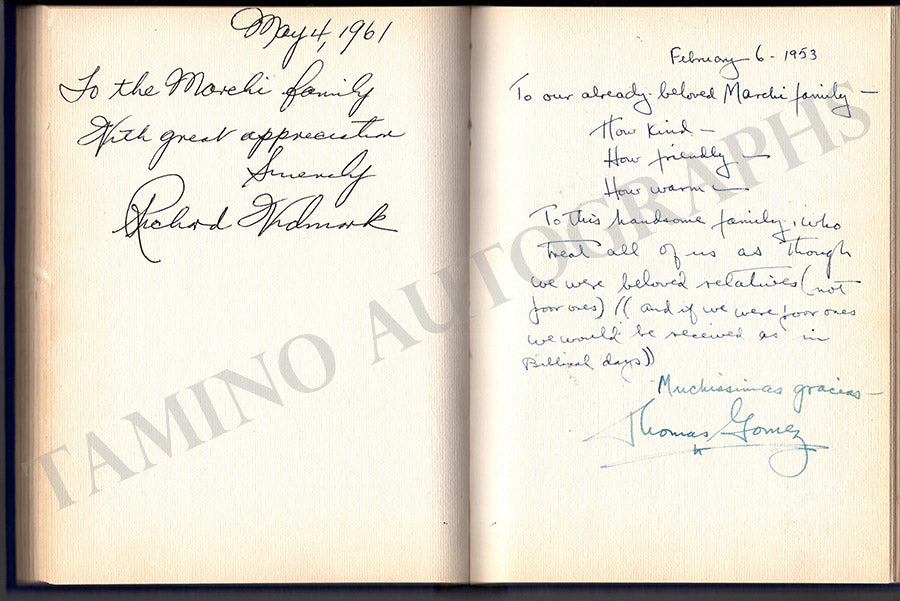 May 4, 1961
To the Marchi family
With great appreciation
Sincerely
Richard Widmark
February 6 - 1953
To our already-beloved Marchi family —
How kind —
How friendly —
How warm —
To this handsome family, who
treat all of us as though
we were beloved relatives (not
poor ones) (( and if we were poor ones
we would be received as in
Biblical days))
Muchissimas gracias —
Thomas Gomez
TAMINO AUTOGRAPHS